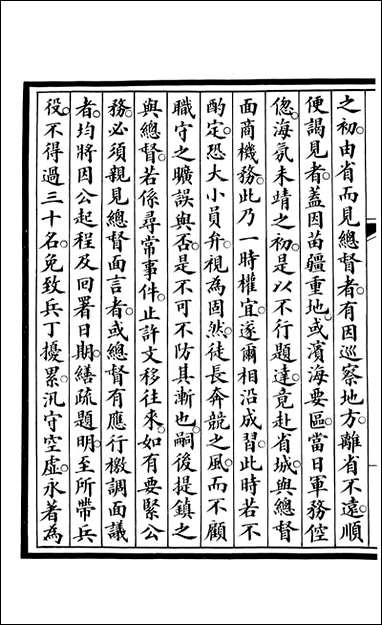 之初。由省而見總督者。有因巡察地方。離省不遠。順
便謁見者。蓋因苗疆重地。或濱海要區。當日軍務倥
傯。海氛未靖之初。是以不行題達。竟赴省城。與總督
面商機務。此乃一時權宜。遂爾相沿成習。此時若不
酌定。恐大小員弁。視為固然。徒長奔競之風。而不顧
職守之曠誤與否。是不可不防其漸也。嗣後提鎮之
與總督。若係尋常事件。止許文移往來。如有要緊公
務。必須親見總督面言者。或總督有應行檄調面議
者。均將因公起程及回署日期。繕疏題明。至所帶兵
役。不得過三十名。免致兵丁擾累。汛守空虛。永著為